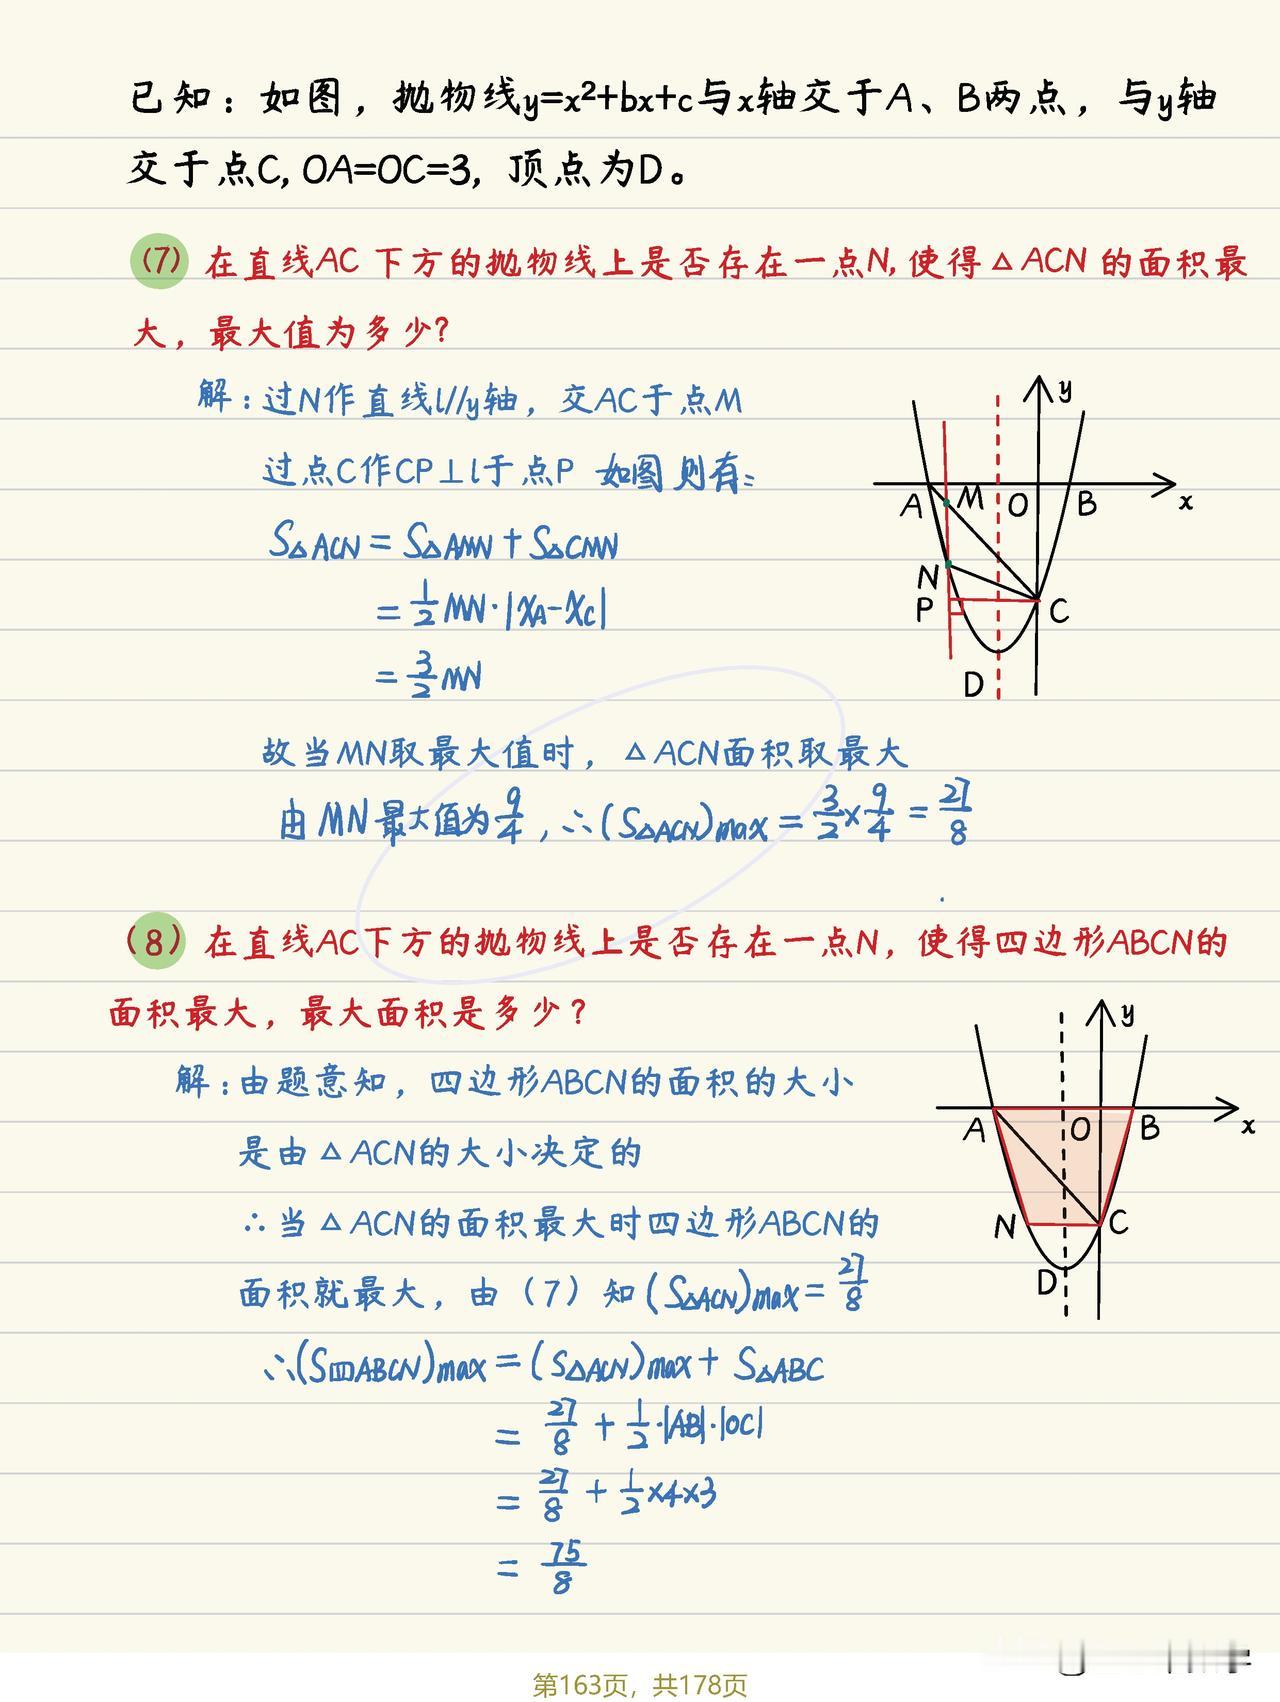 已知：如图，抛物线y=x²+bx+c与x轴交于A、B两点，与y轴
交于点C, OA=OC=3, 顶点为D。
(7) 在直线AC 下方的抛物线上是否存在一点N, 使得△ACN 的面积最
大，最大值为多少?
解：过N作直线l//y轴，交AC于点M
过点C作CP⊥l于点P 如图 则有：
S△ACN = S△AMN + S△CMN
= 1/2 MN·|xA-xC|
= 3/2 MN
故当MN取最大值时，△ACN面积取最大
由MN最大值为9/4, ∴(S△ACN)max = 3/2×9/4 = 27/8
y
A M O B x
N
P C
D
(8) 在直线AC下方的抛物线上是否存在一点N，使得四边形ABCN的
面积最大，最大面积是多少?
解：由题意知，四边形ABCN的面积的大小
是由△ACN的大小决定的
∴当△ACN的面积最大时四边形ABCN的
面积就最大，由（7）知(S△ACN)max = 27/8
∴(S四ABCN)max = (S△ACN)max + S△ABC
= 27/8 + 1/2·|AB|·|OC|
= 27/8 + 1/2×4×3
= 75/8
y
A O B x
N C
D
第163页，共178页